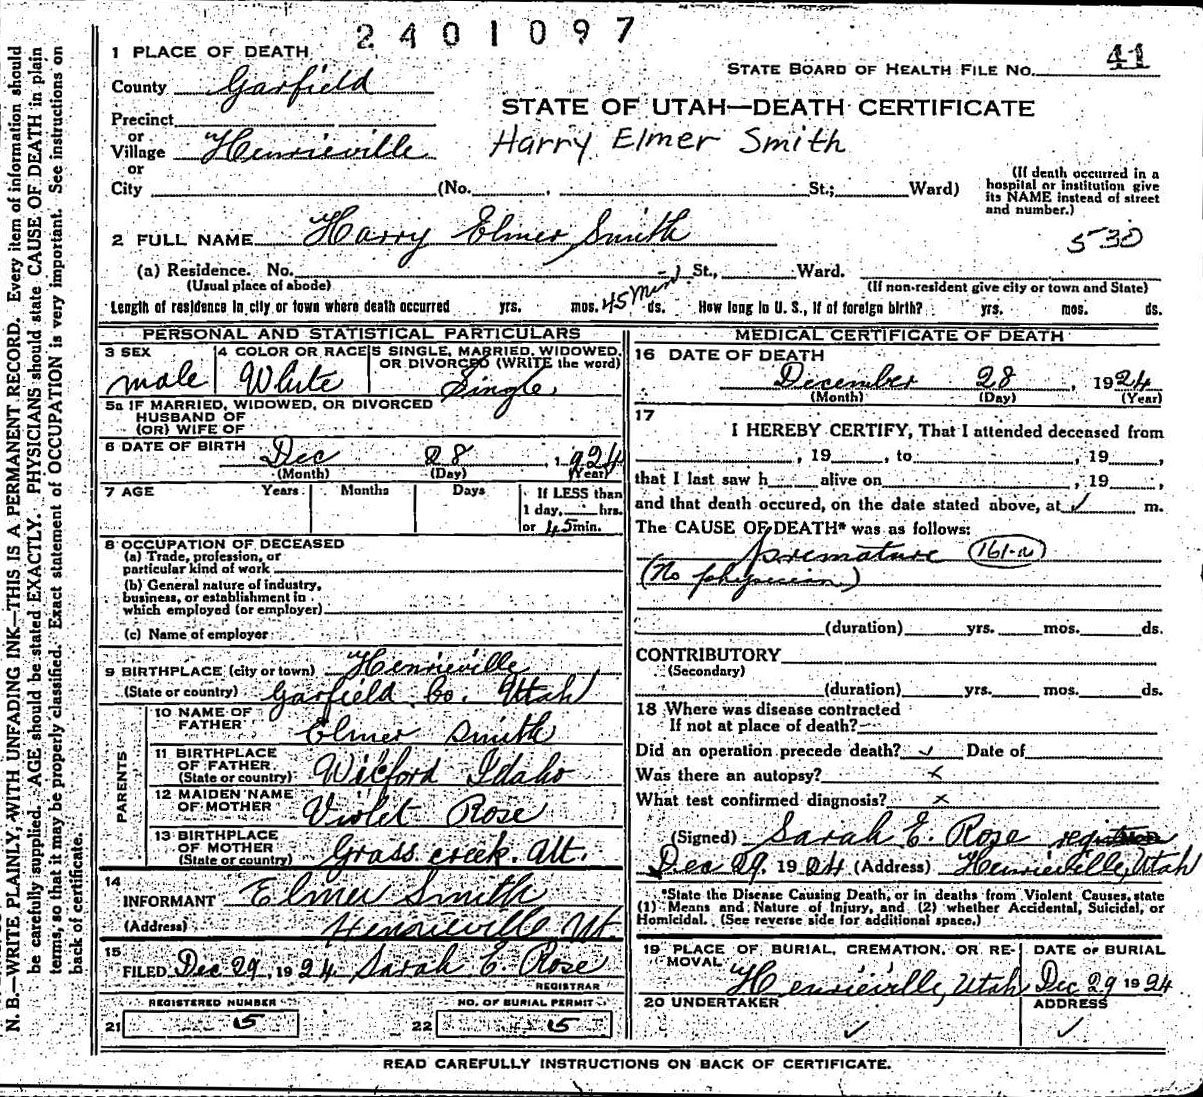 2401097
1 PLACE OF DEATH
STATE BOARD OF HEALTH FILE NO. 41
County Garfield
STATE OF UTAH—DEATH CERTIFICATE
Precinct
or
Village Henrieville
Harry Elmer Smith
or
City (No. , St.; Ward)
(If death occurred in a
hospital or institution give
its NAME instead of street
and number.)
2 FULL NAME Harry Elmer Smith
530
(a) Residence. No. St., Ward.
(Usual place of abode)
(If non-resident give city or town and State)
Length of residence in city or town where death occurred yrs. mos. 45 Min ds. How long in U. S., if of foreign birth? yrs. mos. ds.
PERSONAL AND STATISTICAL PARTICULARS
3 SEX
male
4 COLOR OR RACE
White
5 SINGLE, MARRIED, WIDOWED,
OR DIVORCED (WRITE the word)
Single
5a IF MARRIED, WIDOWED, OR DIVORCED
HUSBAND OF
(OR) WIFE OF
6 DATE OF BIRTH Dec 28, 1924
(Month) (Day) (Year)
7 AGE Years Months Days If LESS than
1 day, hrs.
or 45 min.
8 OCCUPATION OF DECEASED
(a) Trade, profession, or
particular kind of work
(b) General nature of industry,
business, or establishment in
which employed (or employer)
(c) Name of employer
9 BIRTHPLACE (city or town) Henrieville
(State or country) Garfield Co. Utah
PARENTS
10 NAME OF
FATHER Elmer Smith
11 BIRTHPLACE
OF FATHER
(State or country) Wilford Idaho
12 MAIDEN NAME
OF MOTHER Violet Rose
13 BIRTHPLACE
OF MOTHER
(State or country) Grass creek. Ut.
14
INFORMANT Elmer Smith
(Address) Henrieville Ut.
15
FILED Dec 29, 1924 Sarah E. Rose
REGISTRAR
REGISTERED NUMBER
21 15
NO. OF BURIAL PERMIT
22 15
MEDICAL CERTIFICATE OF DEATH
16 DATE OF DEATH
December 28, 1924
(Month) (Day) (Year)
17
I HEREBY CERTIFY, That I attended deceased from
, 19 , to , 19 ,
that I last saw h alive on , 19 ,
and that death occured, on the date stated above, at ✓ m.
The CAUSE OF DEATH* was as follows:
premature 161-a
(No physician)
(duration) yrs. mos. ds.
CONTRIBUTORY
(Secondary)
(duration) yrs. mos. ds.
18 Where was disease contracted
If not at place of death?
Did an operation precede death? ✓ Date of
Was there an autopsy? x
What test confirmed diagnosis? x
(Signed) Sarah E. Rose
Dec 29. 1924 (Address) Henrieville, Utah
*State the Disease Causing Death, or in deaths from Violent Causes, state
(1) Means and Nature of Injury, and (2) whether Accidental, Suicidal, or
Homicidal. (See reverse side for additional space.)
19 PLACE OF BURIAL, CREMATION, OR RE-
MOVAL Henrieville, Utah
DATE OF BURIAL
Dec 29 1924
20 UNDERTAKER
✓
ADDRESS
✓
READ CAREFULLY INSTRUCTIONS ON BACK OF CERTIFICATE.
N. B.—WRITE PLAINLY, WITH UNFADING INK—THIS IS A PERMANENT RECORD. Every item of information should
be carefully supplied. AGE should be stated EXACTLY. PHYSICIANS should state CAUSE OF DEATH in plain
terms, so that it may be properly classified. Exact statement of OCCUPATION is very important. See instructions on
back of certificate.